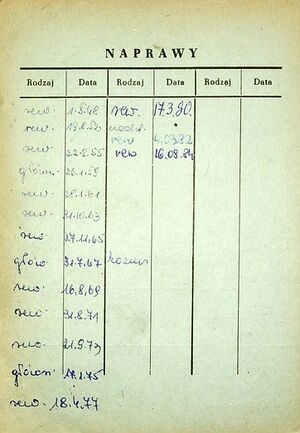 NAPRAWY
Rodzaj Data Rodzaj Data Rodzaj Data
rew. 1.3.48 rew. 17.3.80.
rew.
rew 4.03.82
rew. 22.8.55 rew 16.08.84
główn. 26.1.59
rew. 28.1.61
rew. 31.10.63
rew 27.11.65
główn. 31.7.67
rew. 16.8.69
rew. 31.8.71
rew. 21.9.73
główn. 17.1.75
rew. 18.4.77